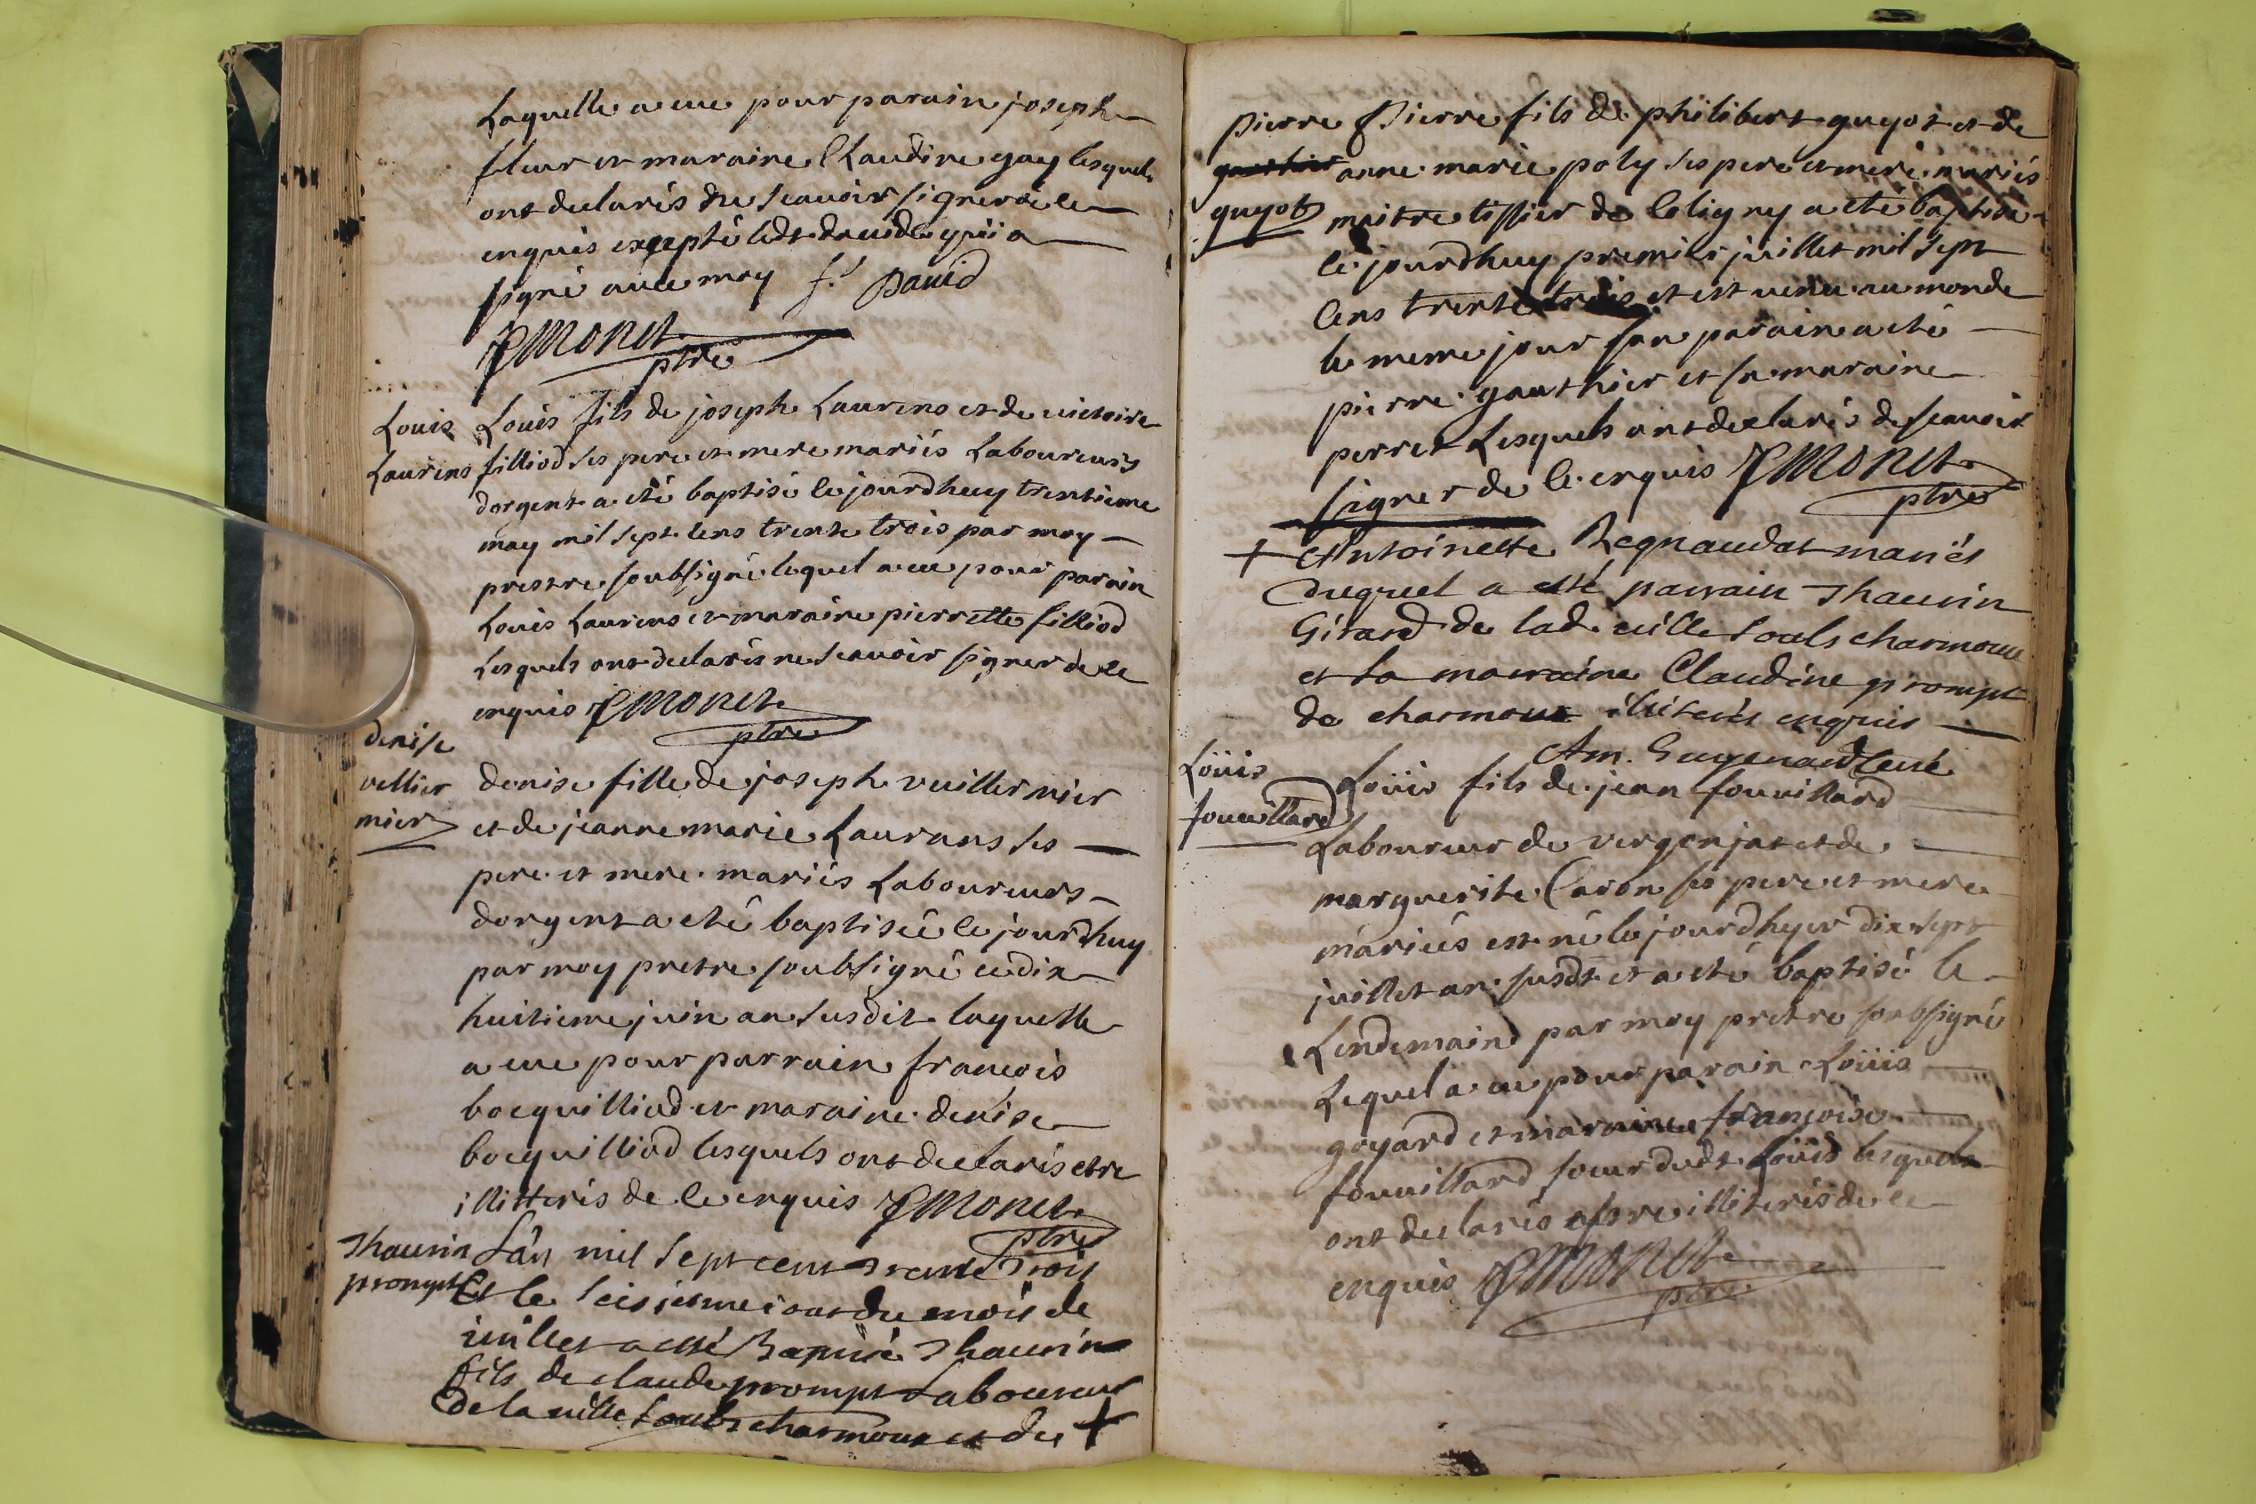 Laquelle a eue pour parain joseph
fleur et maraine Claudine gay lesquels
ont declarés ne scavoir signer de ce
enquis excepté ledt david qui a
signé avec moy f. David
Monet
ptre
Louis
Laurens
Louis fils de joseph Laurens et de victoire
filliod ses pere et mere mariés Laboureurs
dorgent a eté baptisé le jourdhuy trentieme
may mil sept cens trente trois par moy
prestre soubsigné lequel a eu pour parain
Louis Laurens et maraine pierrette filliod
Lesquels ont declarés ne scavoir signer de ce
enquis Monet
ptre
denise
vellier
mier
denise fille de joseph vuillermier
et de jeanne marie Laurans ses
pere et mere mariés Laboureurs
dorgent a eté baptisée le jourdhuy
par moy pretre soubsigné ce dix
huitieme juin an susdit laquelle
a eue pour parrain françois
bocquilliod et maraine denise
bocquilliod lesquels ont declarés etre
illitterés de ce enquis Monet
ptre
Thaurin
prompt
L'an mil sept cent trente trois
Et le seisiesme jour du mois de
juillet a esté Baptisé Thaurin
fils de claude prompt Laboureur
de la ville soubs charmoux et de +
pierre
guyot
Pierre fils de philibert guyot et de
anne marie poly ses pere et mere mariés
maitre tissier de Coligny a eté baptisé
le jourdhuy premier juillet mil sept
cens trente trois et est venu au monde
le meme jour son parain a eté
pierre gauthier et sa maraine
perret Lesquels ont declarés de scavoir
signer de ce enquis Monet
ptre
+ Antoinette Regnaudat mariés
duquel a esté parrain Thaurin
Girard de lad. ville soubs charmoux
et la marraine Claudine prompt
de charmoux illiterés enquis
Am. Guyenard Curé
Loüis
fouvillard
Loüis fils de jean fouvillard
Laboureur de vergonjat et de
marguerite Caron ses pere et mere
mariés est né le jourdhyer dix sept
juillet an susdt et a eté baptisé le
Lendemain par moy pretre soubsigné
Lequel a eu pour parain Loüis
goyard et maraine françoise
fouvillard soeur dudt Loüis lesquels
ont declarés estre illiterés de ce
enquis Monet
ptre